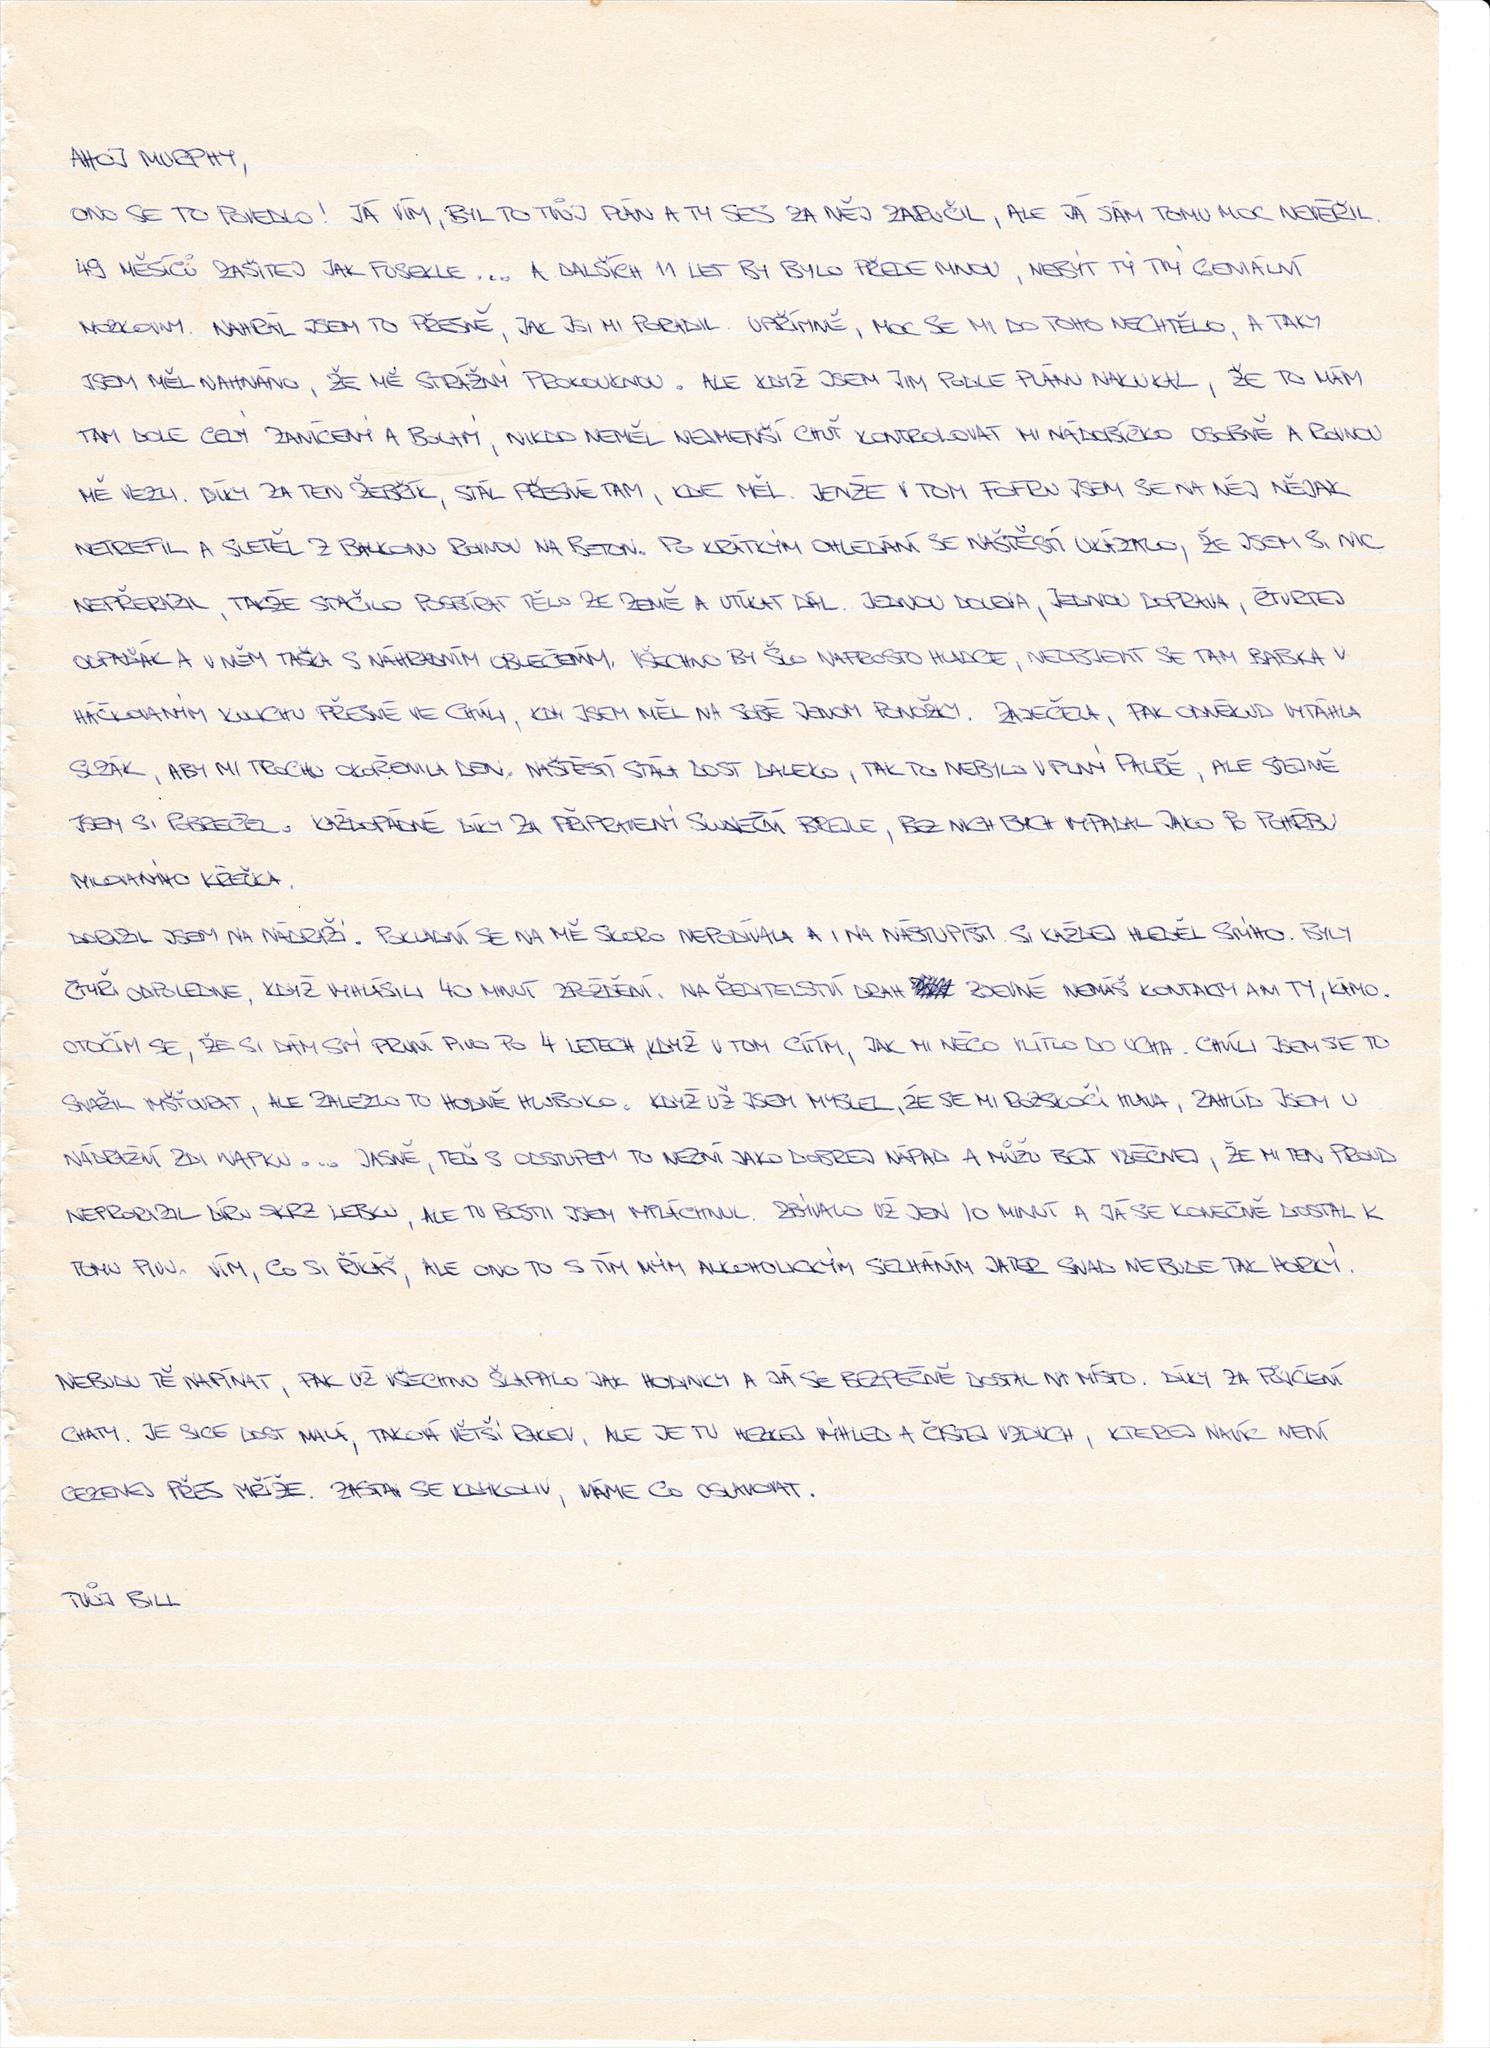 AHOJ MURPHY,
ONO SE TO POVEDLO! JÁ VÍM, BYL TO TVŮJ PLÁN A TY SES ZA NĚJ ZARUČIL, ALE JÁ SÁM TOMU MOC NEVĚŘIL.
49 MĚSÍCŮ ZAŠITEJ JAK FUSEKLE... A DALŠÍCH 11 LET BY BYLO PŘEDE MNOU, NEBÝT TÝ TVÝ GENIÁLNÍ
NORKOVINY. NAHRÁL JSEM TO PŘESNĚ, JAK JSI MI PORADIL. UPŘÍMNĚ, MOC SE MI DO TOHO NECHTĚLO, A TAKY
JSEM MĚL NAHNÁNO, ŽE MĚ STRÁŽNÝ PROKOUKNOU. ALE KDYŽ JSEM JIM PODLE PLÁNU NAKUKAL, ŽE TO MÁM
TAM DOLE CELÝ ZANÍCENÝ A BOLAVÝ, NIKDO NEMĚL NEJMENŠÍ CHUŤ KONTROLOVAT MI NÁDOBÍČKO OSOBNĚ A ROVNOU
MĚ VEZLI. DÍKY ZA TEN ŽEBŘÍK, STÁL PŘESNĚ TAM, KDE MĚL. JENŽE V TOM FOFRU JSEM SE NA NĚJ NĚJAK
NETREFIL A SLETĚL Z BALKONU ROVNOU NA BETON. PO KRÁTKÝM OHLEDÁNÍ SE NAŠTĚSTÍ UKÁZALO, ŽE JSEM SI NIC
NEPŘERAZIL, TAKŽE STAČILO POSBÍRAT TĚLO ZE ZEMĚ A UTÍKAT DÁL. JEDNOU DOLEVA, JEDNOU DOPRAVA, ČTVRTEJ
ODPAĎÁK A V NĚM TAŠKA S NÁHRADNÍM OBLEČENÍM. VŠECHNO BY ŠLO NAPROSTO HLADCE, NEOBJEVIT SE TAM BABKA V
HÁČKOVANÝM KULICHU PŘESNĚ VE CHVÍLI, KDY JSEM MĚL NA SOBĚ JENOM PONOŽKY. ZAJEČELA, PAK ODNĚKUD VYTÁHLA
SLZÁK, ABY MI TROCHU OKOŘENILA DEN. NAŠTĚSTÍ STÁLA DOST DALEKO, TAK TO NEBYLO V PLNÝ PALBĚ, ALE STEJNĚ
JSEM SI POBREČEL. KAŽDOPÁDNĚ DÍKY ZA PŘIPRAVENÝ SLUNEČNÍ BREJLE, BEZ NICH BYCH VYPADAL JAKO PO POHŘBU
MILOVANÝHO KŘEČKA.
DORAZIL JSEM NA NÁDRAŽÍ. POKLADNÍ SE NA MĚ SKORO NEPODÍVALA A I NA NÁSTUPIŠTI SI KAŽDEJ HLEDĚL SVÝHO. BYLY
ČTYŘI ODPOLEDNE, KDYŽ VYHLÁSILI 40 MINUT ZPOŽDĚNÍ. NA ŘEDITELSTVÍ DRAH ZJEVNĚ NEMÁŠ KONTAKTY ANI TY, KÁMO.
OTOČÍM SE, ŽE SI DÁM SVÝ PRVNÍ PIVO PO 4 LETECH, KDYŽ V TOM CÍTÍM, JAK MI NĚCO VLÍTLO DO UCHA. CHVÍLI JSEM SE TO
SNAŽIL VYŠŤOURAT, ALE ZALEZLO TO HODNĚ HLUBOKO. KDYŽ UŽ JSEM MYSLEL, ŽE SE MI ROZSKOČÍ HLAVA, ZAHLÍD JSEM U
NÁDRAŽNÍ ZDI WAPKU... JASNĚ, TEĎ S ODSTUPEM TO NEZNÍ JAKO DOBREJ NÁPAD A MŮŽU BEJT VDĚČNEJ, ŽE MI TEN PROUD
NEPRORAZIL DÍRU SKRZ LEBKU, ALE TU BESTII JSEM VYPLÁCHNUL. ZBÝVALO UŽ JEN 10 MINUT A JÁ SE KONEČNĚ DOSTAL K
TOMU PIVU. VÍM, CO SI ŘÍKÁŠ, ALE ONO TO S TÍM MÝM ALKOHOLICKÝM SELHÁNÍM JATER SNAD NEBUDE TAK HORKÝ.
NEBUDU TĚ NAPÍNAT, PAK UŽ VŠECHNO ŠLAPALO JAK HODINKY A JÁ SE BEZPEČNĚ DOSTAL NA MÍSTO. DÍKY ZA PŮJČENÍ
CHATY. JE SICE DOST MALÁ, TAKOVÁ VĚTŠÍ RAKEV, ALE JE TU HEZKEJ VÝHLED A ČISTEJ VZDUCH, KTEREJ NAVÍC NENÍ
CEZENEJ PŘES MŘÍŽE. ZASTAV SE KDYKOLIV, MÁME CO OSLAVOVAT.
TVŮJ BILL